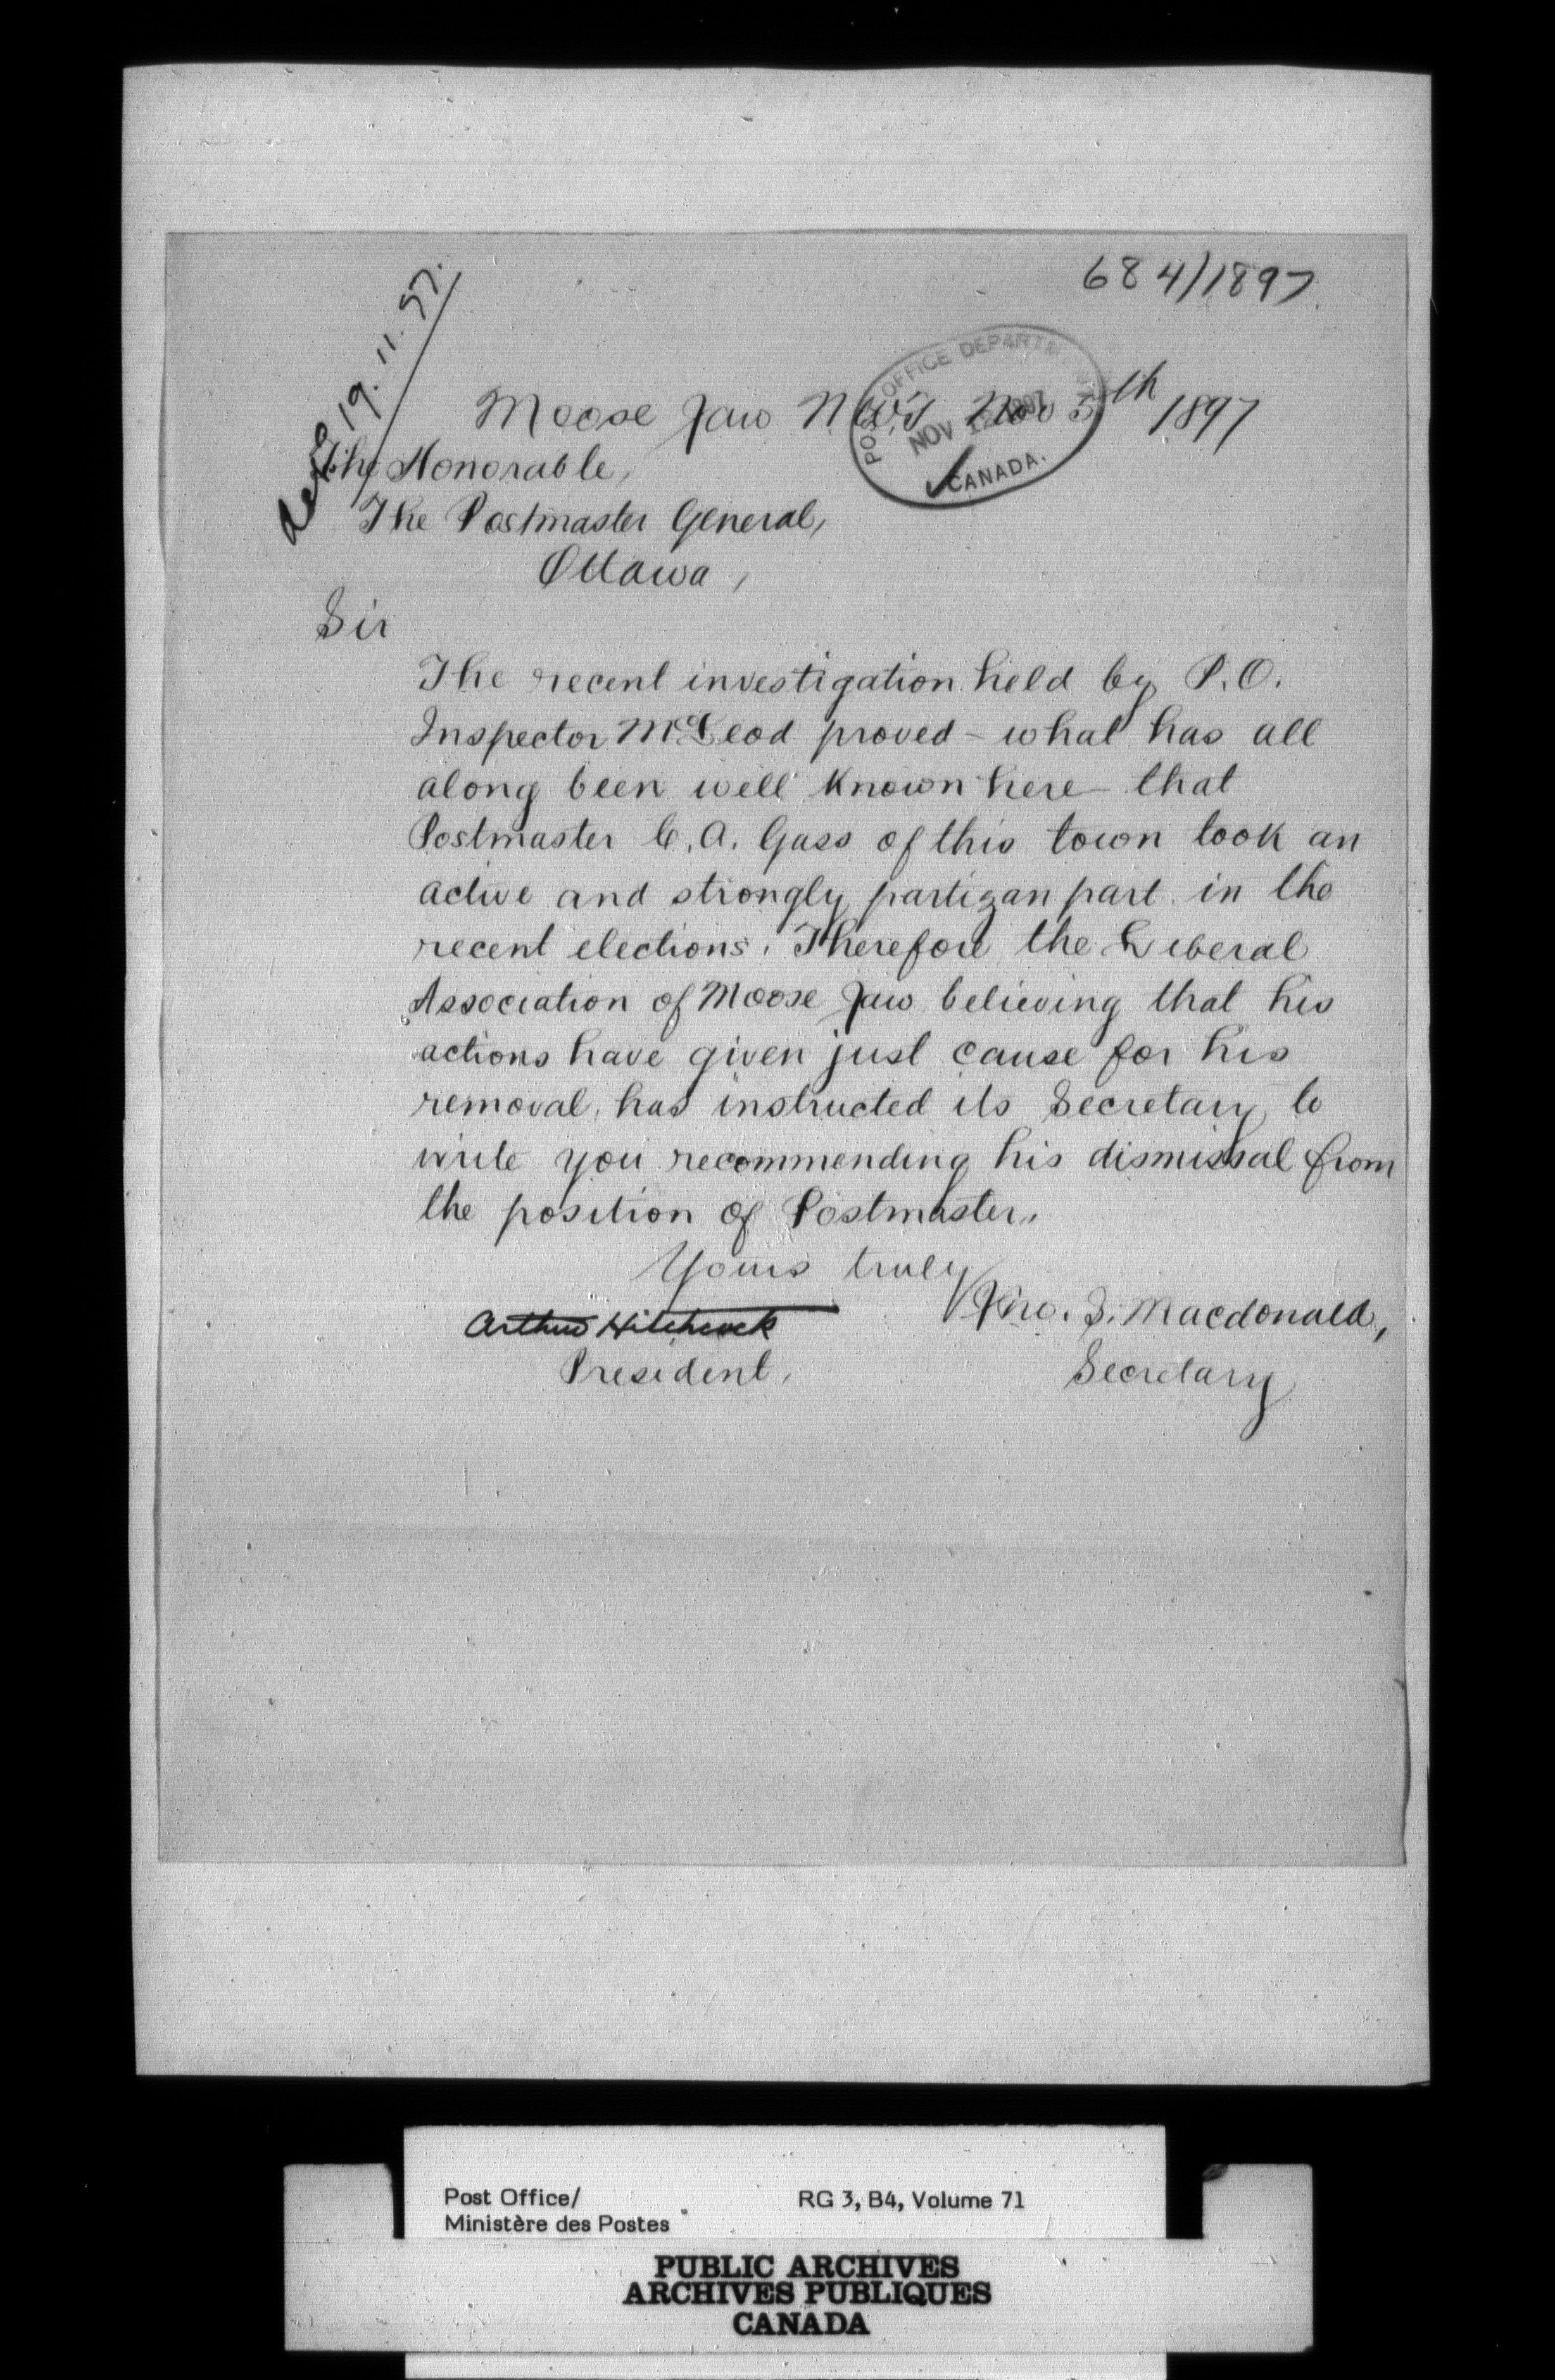 684/1897
19.11.97.
Moose Jaw N.W.T. Nov 5th 1897
POST OFFICE DEPARTM
NOV 1897
CANADA.
The Honorable,
The Postmaster General,
Ottawa,
Sir
The recent investigation held by P.O.
Inspector McLeod proved – what has all
along been well known here – that
Postmaster C. A. Gass of this town took an
active and strongly partizan part in the
recent elections. Therefore the Liberal
Association of Moose Jaw believing that his
actions have given just cause for his
removal, has instructed its Secretary to
write you recommending his dismissal from
the position of Postmaster.
Yours truly
Arthur Hitchcock
President,
Jno. J. Macdonald,
Secretary
Post Office/
Ministère des Postes
RG 3, B4, Volume 71
PUBLIC ARCHIVES
ARCHIVES PUBLIQUES
CANADA